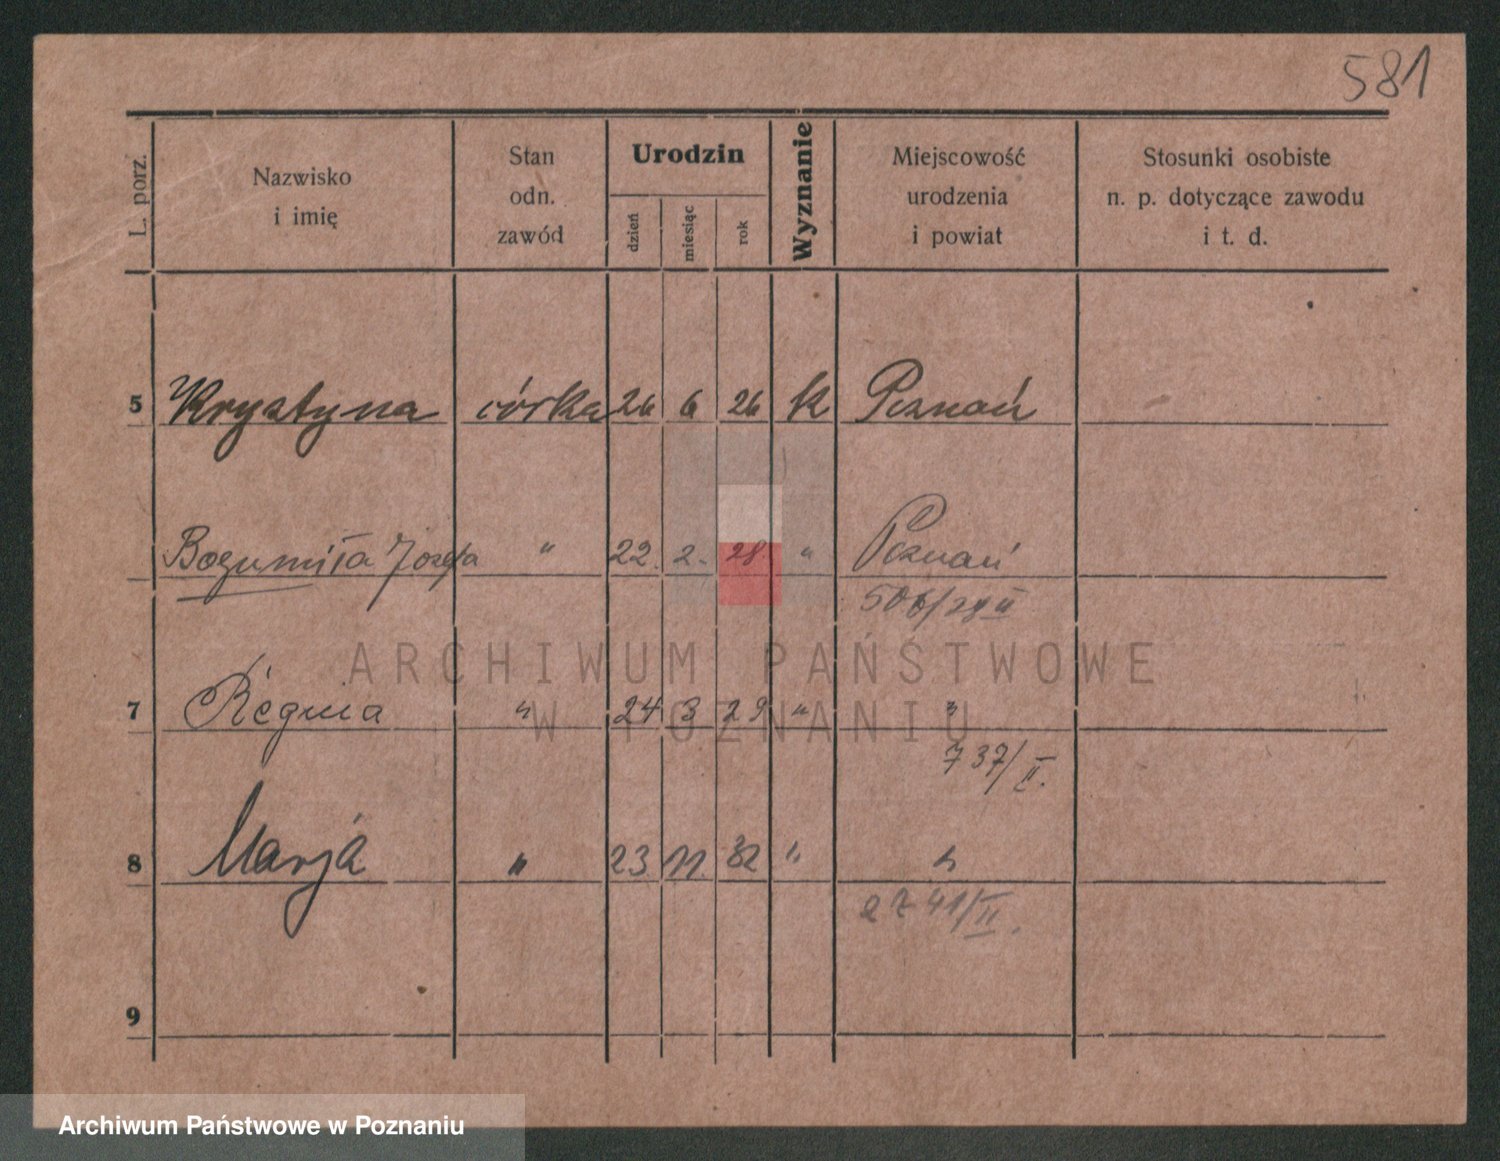 581
L. porz.
Nazwisko
i imię
Stan
odn.
zawód
Urodzin
dzień
miesiąc
rok
Wyznanie
Miejscowość
urodzenia
i powiat
Stosunki osobiste
n. p. dotyczące zawodu
i t. d.
5 Krystyna córka 26 6 26 k Poznań
Bogumiła Józefa " 22. 2. 28. " Poznań
506/28 II
ARCHIWUM PAŃSTWOWE
7 Regina " 24 3 29 " "
W POZNANIU
737/II.
8 Marja " 23 11. 32 " "
2741/II.
9
Archiwum Państwowe w Poznaniu